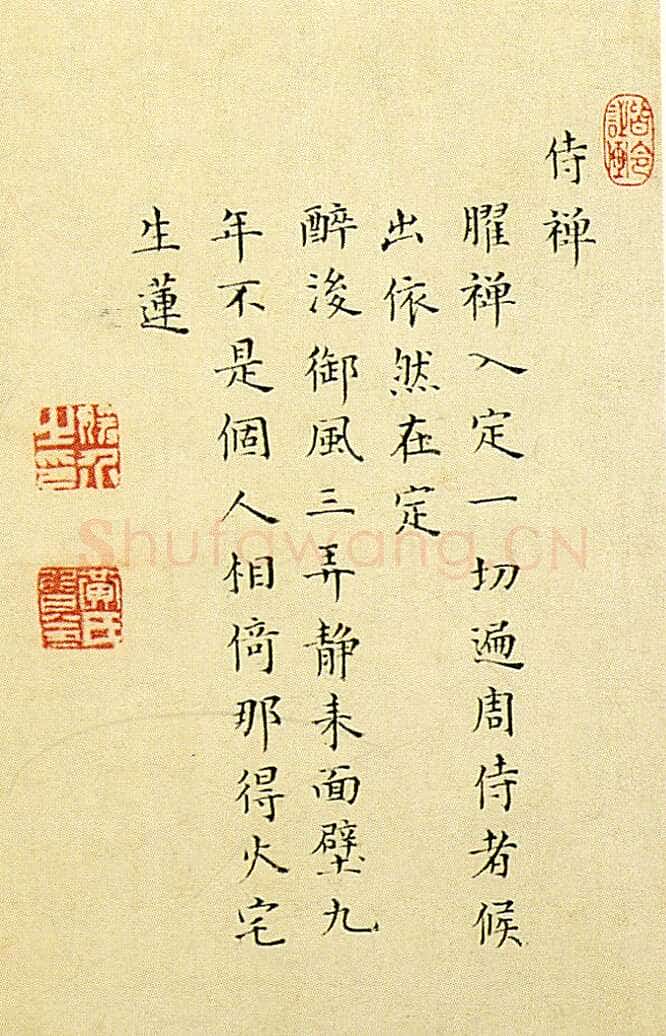 侍禅
臞禅入定一切遍周侍者候
出依然在定
醉後御風三弄静来面壁九
年不是個人相倚那得火宅
生蓮
黄氏皆令
Shufawang.CN